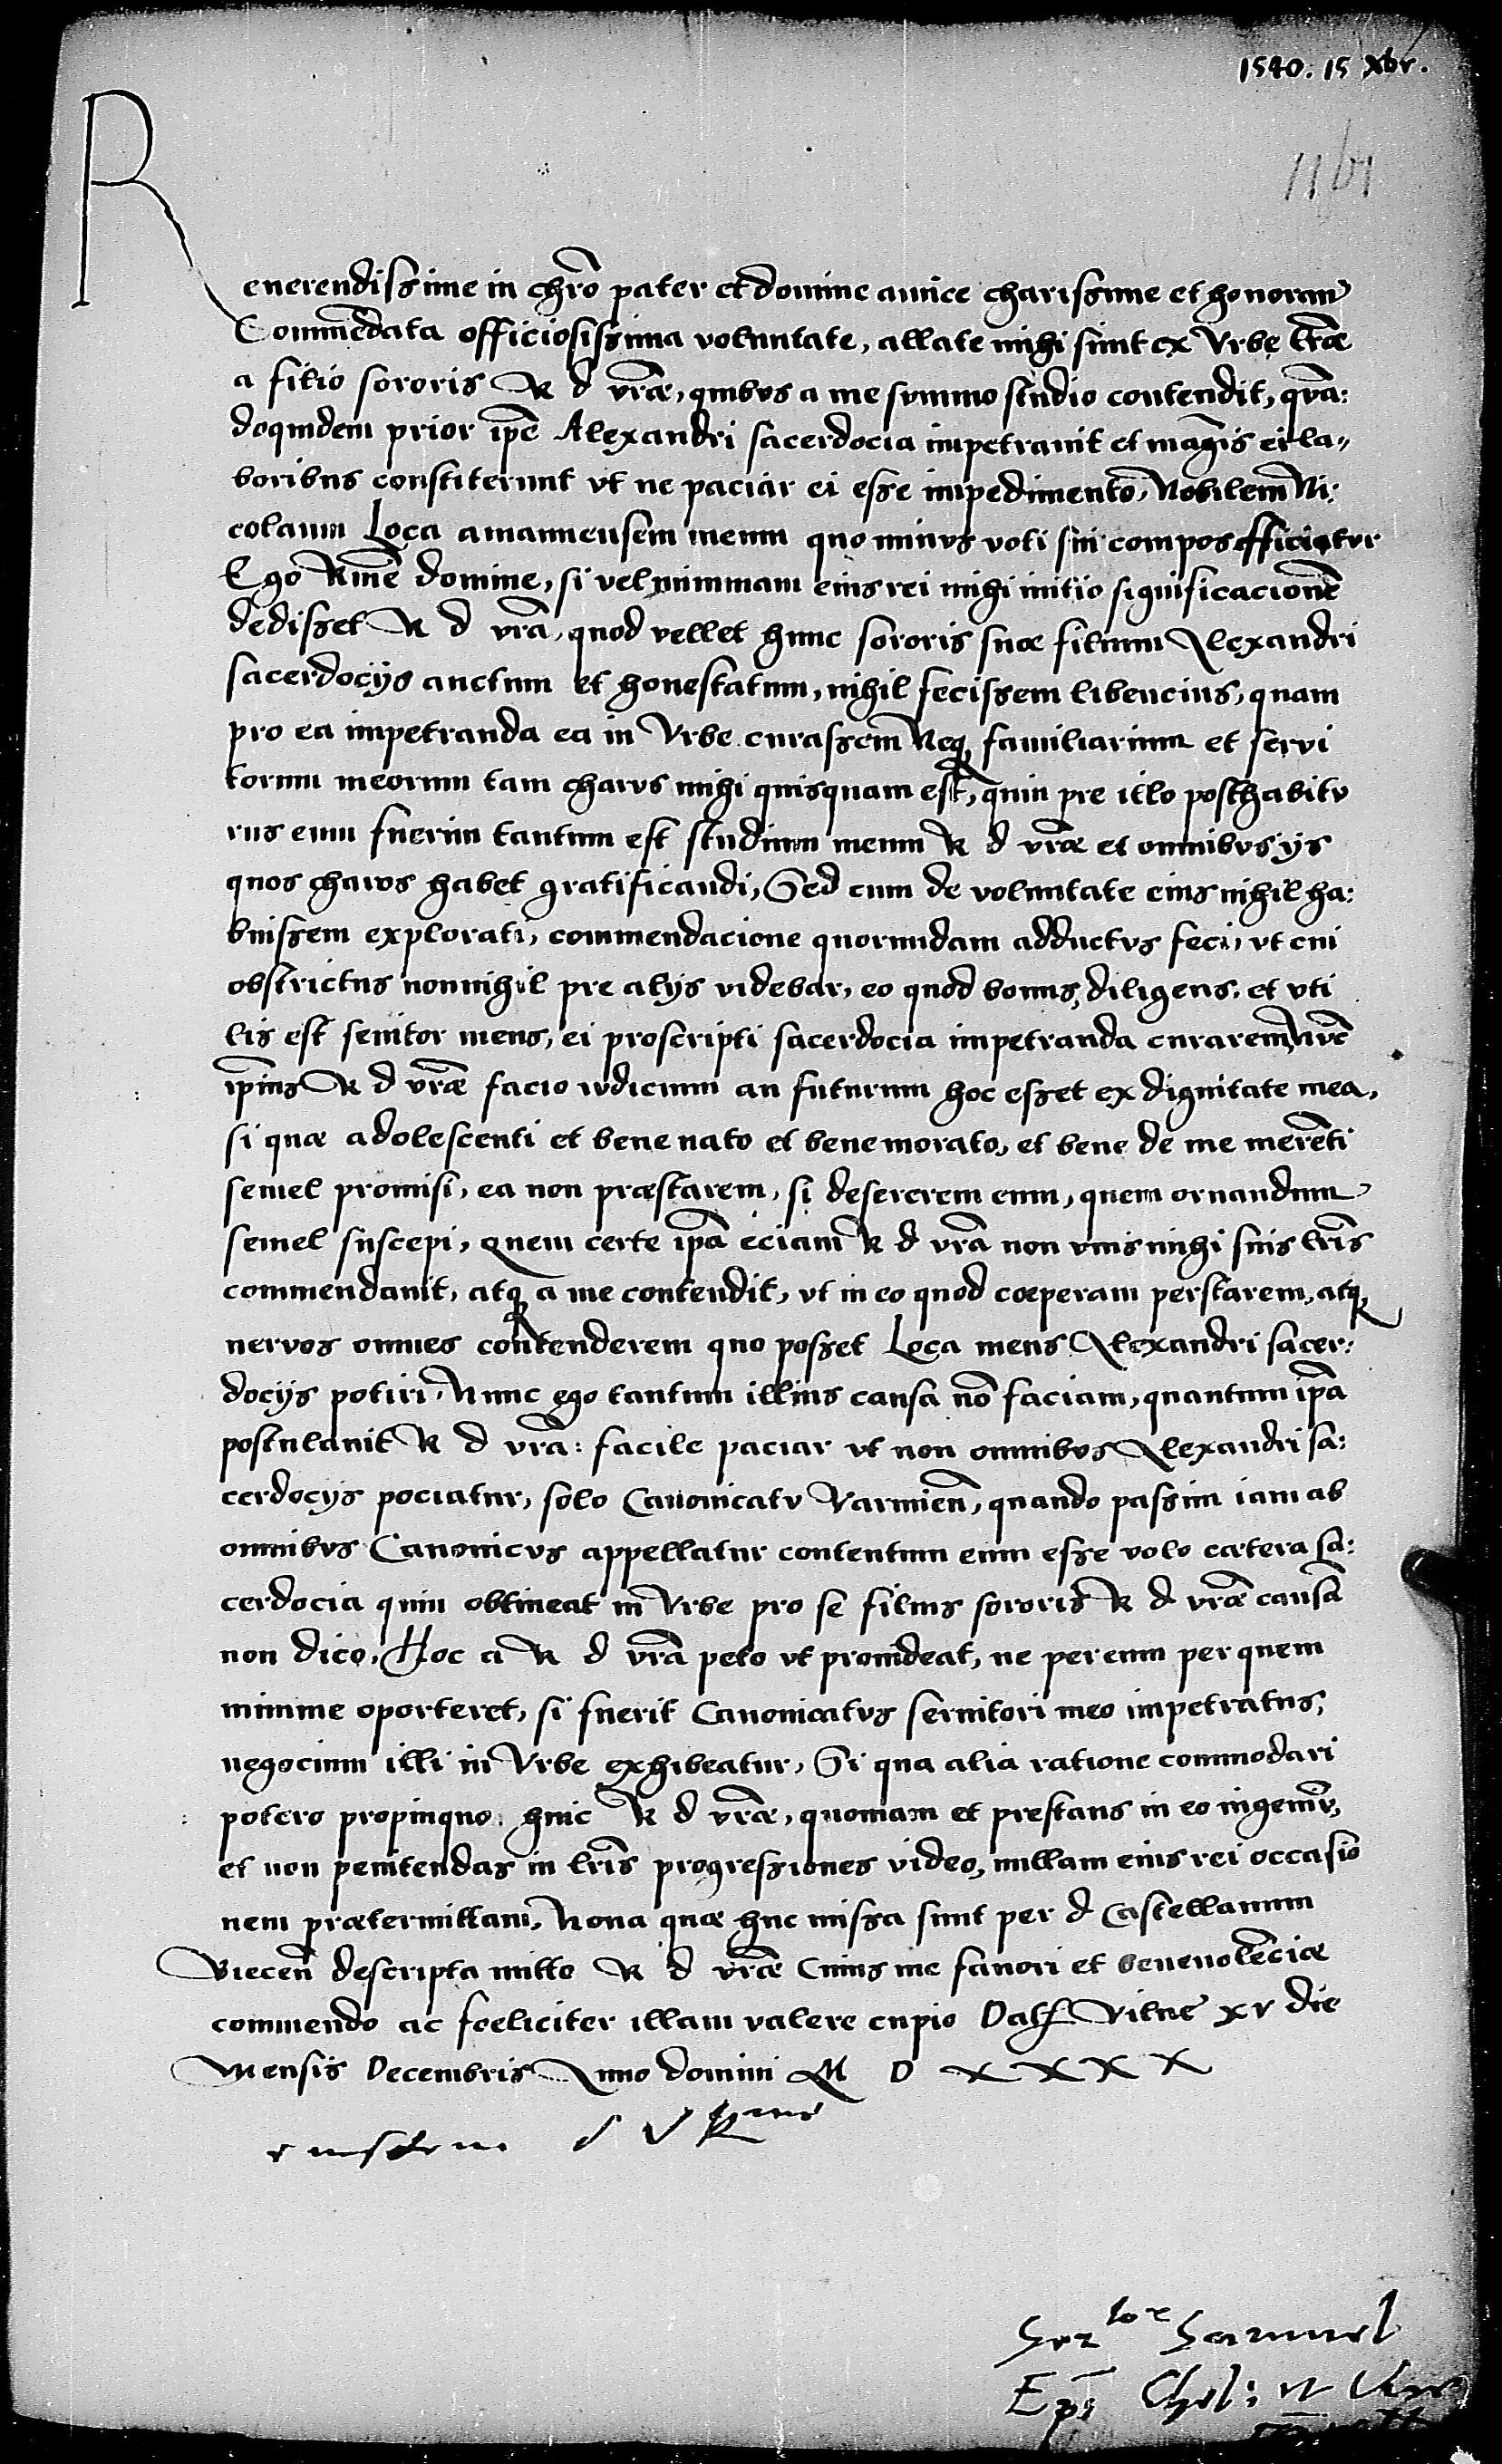 1540. 15 Xbr.
Reuerendissime in chro pater et domine amice charissime et honoran
Commedata officiosissima voluntate, allate mihi sunt ex Vrbe lrae
a filio sororis R d vrae, quibus a me summo studio contendit, qua:
doquidem prior ipe Alexandri sacerdocia impetrauit et magis ei la„
boribus constiterunt vt ne paciar ei esse impedimento, Nobilem Ni:
colaum Loca amanuensem meum quo minus voti sui compos efficiatur
Ego Rme domine, si vel minimam eius rei mihi initio significacione
dedisset R d vra, quod vellet hunc sororis suae filium Alexandri
sacerdocijs auctum et honestatum, nihil fecissem libencius, quam
pro ea impetranda ea in Vrbe curassem Neq familiarium et serui
torum meorum tam charus mihi quisquam est, quin pre illo posthabitu
rus eum fuerim tantum est studium meum R d vrae et omnibus ijs
quos charos habet gratificandi, Sed cum de voluntate eius nihil ha:
buissem explorati, commendacione quorundam adductus feci, vt cui
obstrictus nonnihil pre alijs videbar, eo quod bonus, diligens, et vti
lis est seruitor meus, ei proscripti sacerdocia impetranda curarem, Nuc
ipius R d vrae facio iudicium an futurum hoc esset ex dignitate mea,
si quae adolescenti et bene nato et bene morato, et bene de me mereti
semel promisi, ea non praestarem, si desererem eum, quem ornandum
semel suscepi, quem certe ipa eciam R d vra non vnis mihi suis lris
commendauit, atq a me contendit, vt in eo quod coeperam perstarem, atq
neruos omnes contenderem quo posset Loca meus Alexandri sacer:
docijs potiri, Nunc ego tantum illius causa no faciam, quantum ipa
postulauit R d vra: facile paciar vt non omnibus Alexandri sa:
cerdocijs pociatur, solo Canonicatu Varmien, quando passim iam ab
omnibus Canonicus appellatur contentum eum esse volo caetera sa:
cerdocia quin obtineat in Vrbe pro se filius sororis R d vrae causa
non dico, Hoc a R d vra peto vt prouideat, ne per eum per quem
minime oporteret, si fuerit Canonicatus seruitori meo impetratus,
negocium illi in Vrbe exhibeatur, Si qua alia ratione commodari
potero propinquo huic R d vrae, quoniam et prestans in eo ingeniu,
et non penitendas in lris progressiones video, nullam eius rei occasio
nem praetermittam, Noua quae huc missa sunt per d Castellanum
Viecen descripta mitto R d vrae Cuius me fauori et beneuolenciae
commendo ac foeliciter illam valere cupio Dat Vilne xv die
Mensis Decembris Anno domini M D X X X X
Samuel
Eps